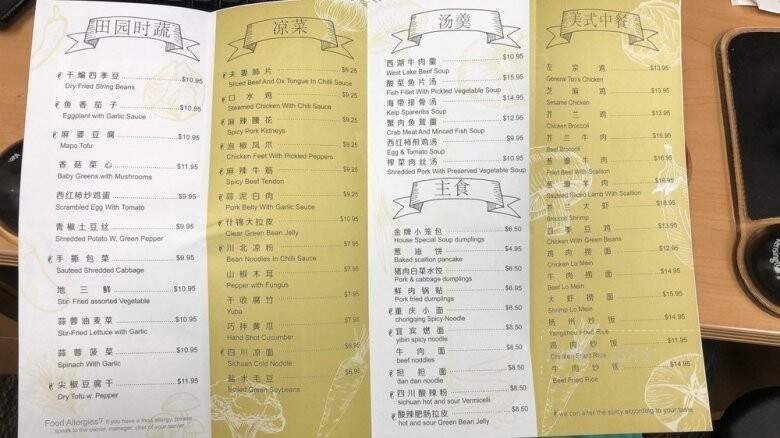 田园时蔬
干煸四季豆 $10.95
Dry Fried String Beans
鱼香茄子 $10.95
Eggplant with Garlic Sauce
麻婆豆腐 $10.95
Mapo Tofu
香菇菜心 $11.95
Baby Greens with Mushrooms
西红柿炒鸡蛋 $9.95
Scrambled Egg With Tomato
青椒土豆丝 $9.95
Shredded Potato W. Green Pepper
手撕包菜 $9.95
Sauteed Shredded Cabbage
地三鲜 $10.95
Stir- Fried assorted Vegetable
蒜蓉油麦菜 $10.95
Stir-Fried Lettuce with Garlic
蒜蓉菠菜 $10.95
Spinach With Garlic
尖椒豆腐干 $11.95
Dry Tofu w. Pepper
Food Allergies? If you have a food allergy, please
speak to the owner, manager, chef of your server.
凉菜
夫妻肺片 $9.25
Sliced Beef And Ox Tongue In Chili Sauce
口水鸡 $9.25
Steamed Chicken With Chili Sauce
麻辣腰花 $9.25
Spicy Pork Kidneys
泡椒凤爪 $9.25
Chicken Feet With Pickled Peppers
麻辣牛筋 $9.25
Spicy Beef Tendon
蒜泥白肉 $9.25
Pork Belly With Garlic Sauce
什锦大拉皮 $10.95
Clear Green Bean Jelly
川北凉粉 $7.95
Bean Noodles In Chili Sauce
山椒木耳 $7.95
Pepper with Fungus
干收腐竹 $7.95
Yuba
巧拌黄瓜 $7.95
Hand Shot Cucumber
四川凉面 $6.95
Sichuan Cold Noddle
盐水毛豆 $5.95
Boiled Green Soybeans
汤羹
西湖牛肉羹 $10.95
West Lake Beef Soup
酸菜鱼片汤 $15.95
Fish Fillet With Pickled Vegetable Soup
海带排骨汤 $14.95
Kelp Spareribs Soup
蟹肉鱼茸羹 $12.95
Crab Meat And Minced Fish Soup
西红柿煎鸡汤 $9.95
Egg & Tomato Soup
榨菜肉丝汤 $10.95
Shredded Pork With Preserved Vegetable Soup
主食
金牌小笼包 $6.50
House Special Soup dumplings
葱油饼 $4.95
Baked scallion pancake
猪肉白菜水饺 $6.50
Pork & cabbage dumplings
鲜肉锅贴 $6.95
Pork fried dumplings
重庆小面 $8.50
chongqing Spicy Noodle
宜宾燃面 $8.50
yibin spicy noodle
牛肉面 $8.50
beef noddles
担担面 $8.50
dan dan noodle
四川酸辣粉 $8.50
sichuan hot and sour Vermicelli
酸辣肥肠拉皮 $8.50
hot and sour Green Bean Jelly
美式中餐
左凉鸡 $13.95
General Tso's Chicken
芝麻鸡 $13.95
Sesame Chicken
芥兰鸡 $13.95
Chicken Broccoli
芥兰牛 $16.95
Beef Broccoli
葱爆肉 $16.95
Fried Beef With Scallion
葱爆羊肉 $16.95
Sauteed Sliced Lamb With Scallion
芥兰大虾 $18.95
Broccoli Shrimp
四季豆鸡 $13.95
Chicken With Green Beans
鸡肉捞面 $12.95
Chicken Lo Mein
牛肉捞面 $14.95
Beef Lo Mein
大虾捞面 $15.95
Shrimp Lo Mein
扬州炒饭 $14.95
Yangzhou Fried Rice
鸡肉炒饭 $11.95
Chicken Fried Rice
牛肉炒饭 $14.95
Beef Fried Rice
we can alter the spicy according to your taste
Kensington